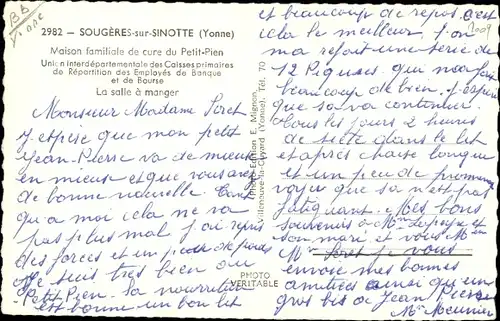 BB
Yonne
2982 - SOUGÈRES-sur-SINOTTE (Yonne)
Maison familiale de cure du Petit-Pien
Union interdépartementale des Caisses primaires
de Répartition des Employés de Banque
et de Bourse
La salle à manger
Monsieur Madame Soret
J'espère que mon petit
Jean-Pierre va de mieux
en mieux et que vous avez
de bonne nouvelle.
qu'a moi cela ne va
pas plus mal j'ai repris
des forces et un peu de poids
Je suis très bien au
Petit Pien. La nourriture
est bonne un bon lit
Édition E. Mignon,
Villeneuve-la-Guyard (Yonne). Tél. 70
PHOTO
VÉRITABLE
et beaucoup de repos c'est
cela le meilleur. l'on
ma refait une série de
12 Piqures. qui nous
beaucoup de bien j'espère
que sa va continuer.
Tous les jours 2 heures
de sieste dans le lit
et après chaise longue
et un peu de promenade
voyez que sa n'est pas
fatiguant. Mes bons
souvenirs à Mme
son mari et vous Mr
Mme Soret je vous
envoie mes bonnes
amitiées ainsi qu'un
gros bis a Jean Pierre
Me Meunier